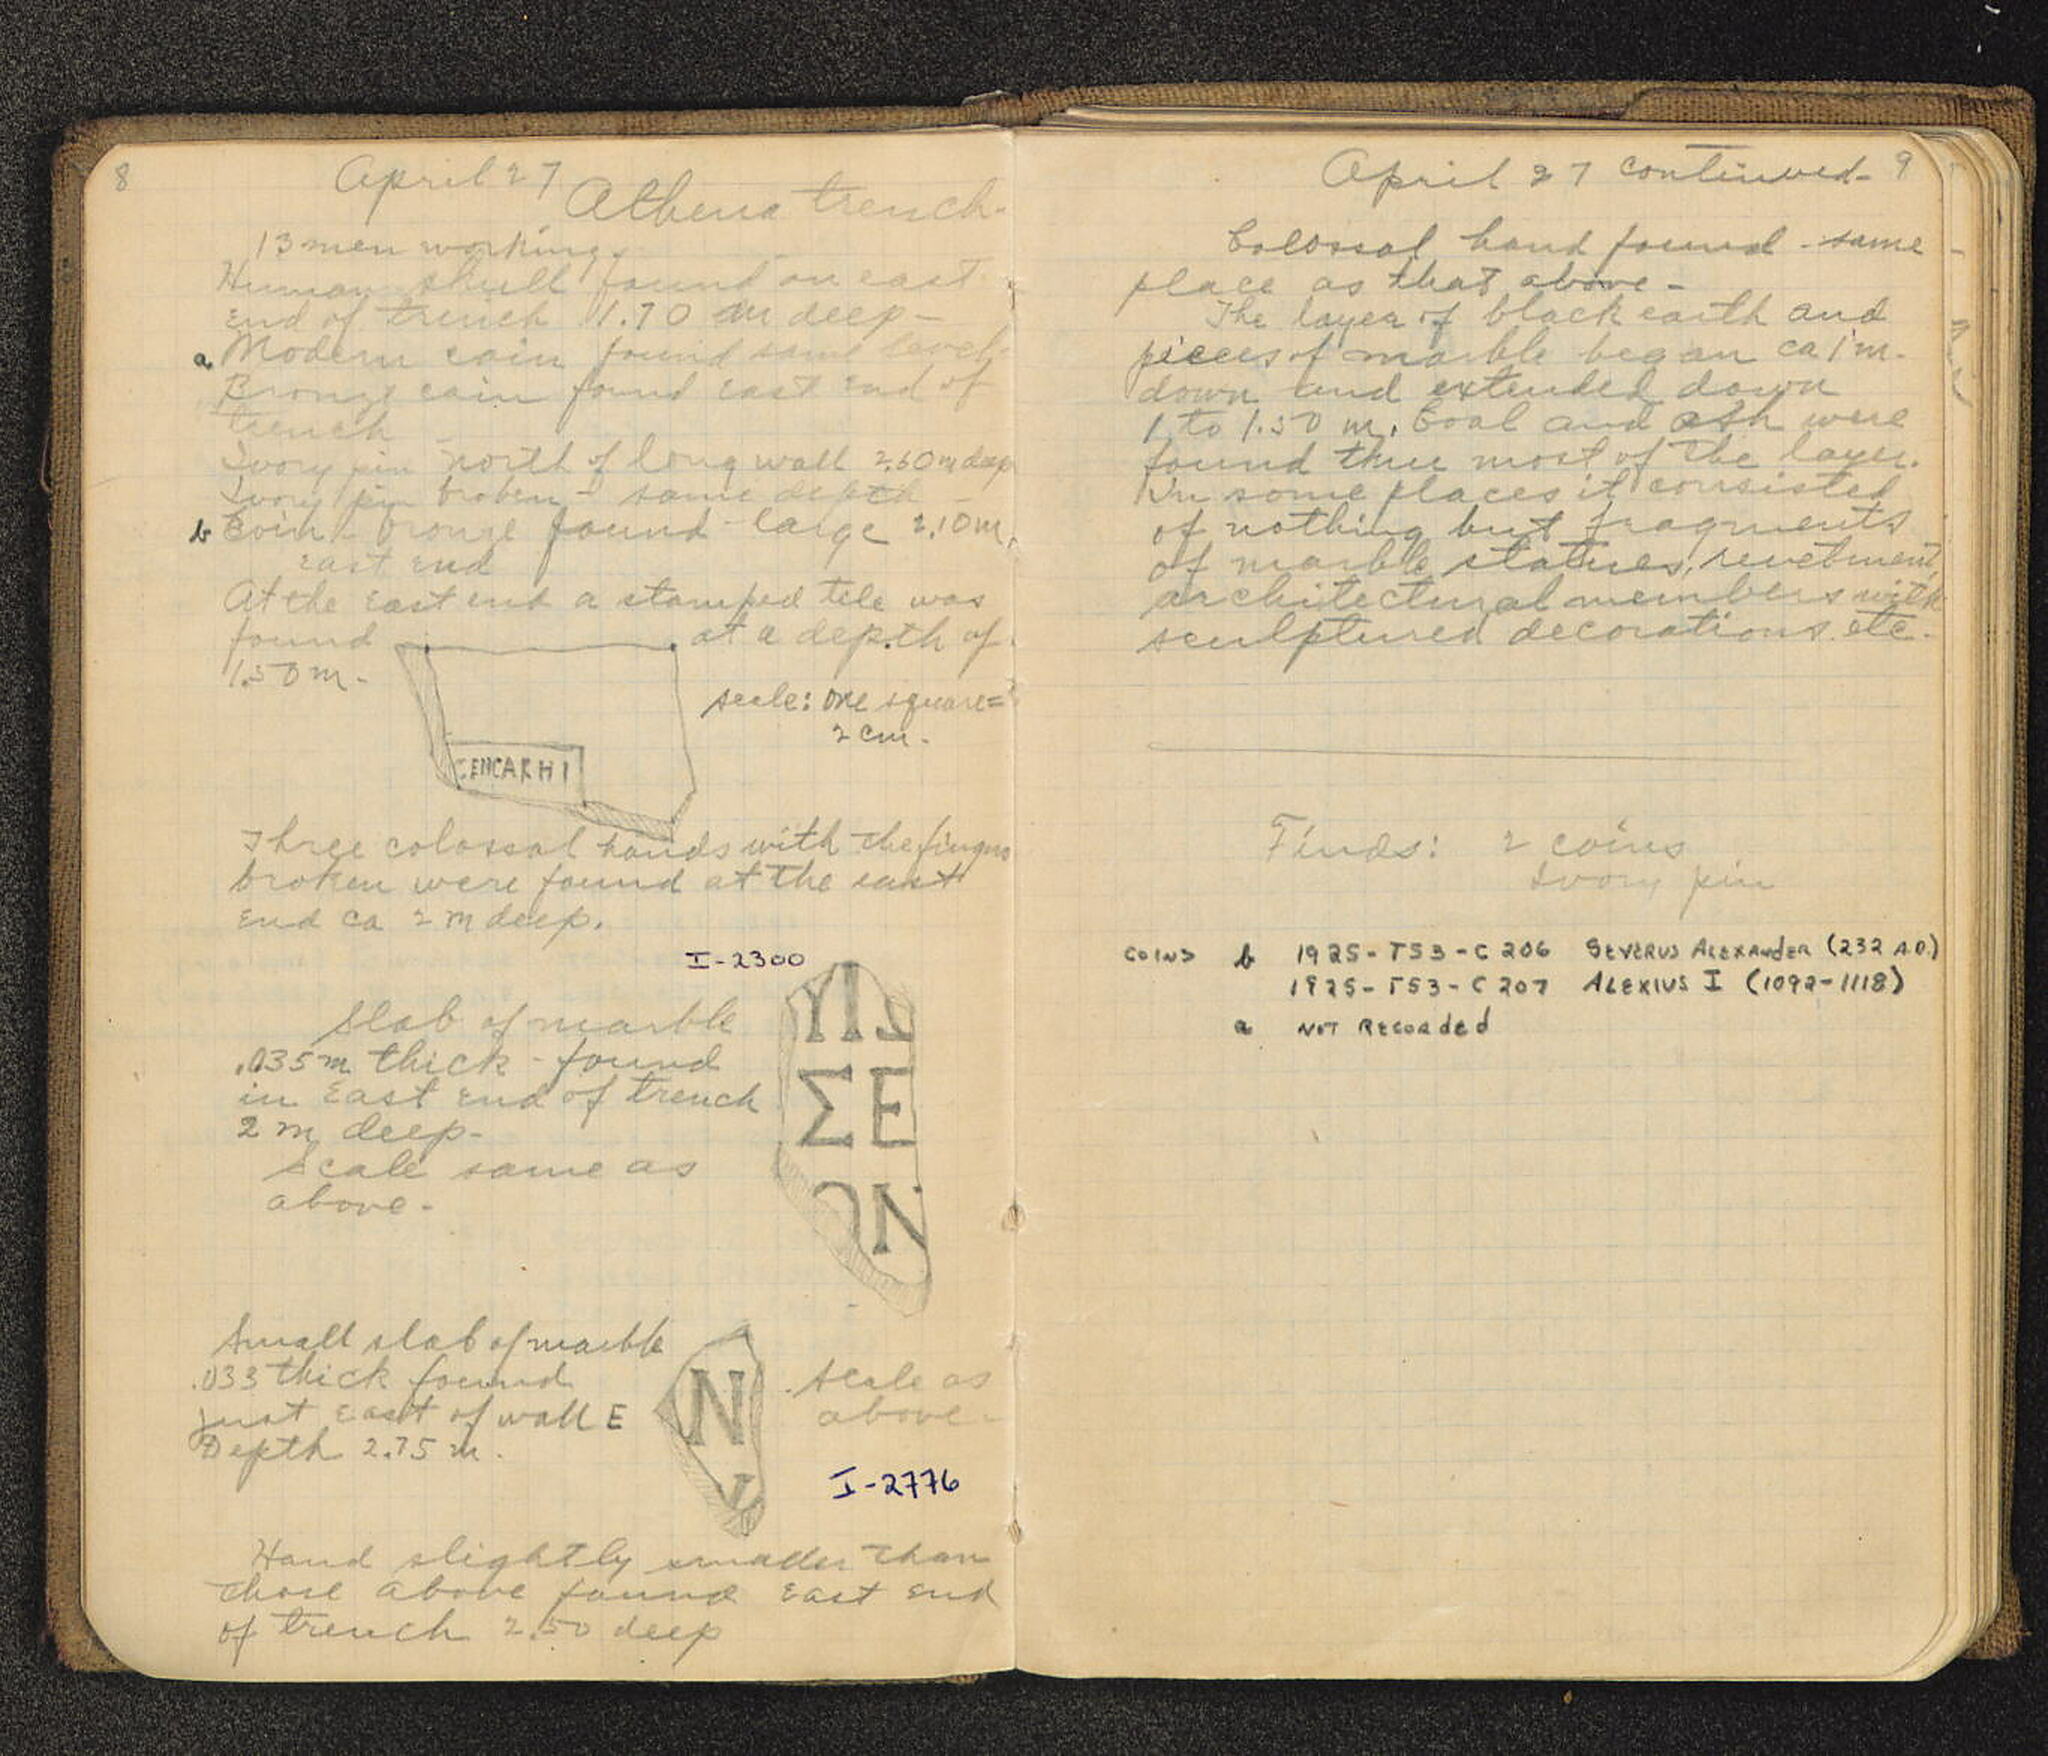 8
April 27
Athena trench-
13 men working.
Human skull found on east
end of trench 1.70 m deep-
a Modern coin found same level-
Bronze coin found East End of
trench
Ivory pin north of long wall 2.60 m deep
Ivory pin broken - same depth -
b Coin - bronze found - large 2.10 m,
East End
At the East end a stamped tile was
found at a depth of
1.50 m-
scale: one square =
2 cm-
CENCARHI
Three colossal hands with the fingers
broken were found at the east
end ca 2 m deep.
I-2300
Slab of marble
.035 m thick - found
in East End of trench
2 m deep-
Scale same as
above-
ΣΕ
ΟΝ
Small slab of marble
.033 thick found
just East of wall E
Depth 2.75 m.
N
Scale as
above-
I-2776
Hand slightly smaller than
those above found East End
of trench 2.50 deep
April 27 continued- 9
Colossal hand found - same
place as that above-
The layer of black earth and
pieces of marble began ca 1 m-
down and extended down
1 to 1.50 m. Coal and ash were
found thru most of the layer.
In some places it consisted
of nothing but fragments
of marble statues, revetment,
architectural members with
sculptured decorations etc-
Finds: 2 coins
Ivory pin
COINS b 1925-T53-C206 SEVERUS ALEXANDER (232 A.D.)
1925-T53-C207 ALEXIUS I (1092-1118)
a NOT RECORDED